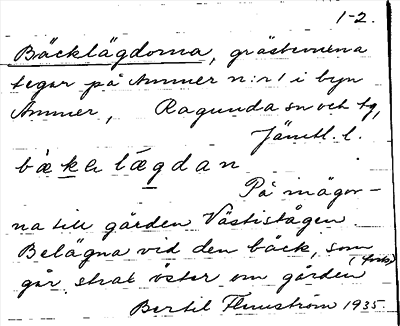 1-2.
Bäcklägdorna, grästevarna
tegar på Ammer n:r 1 i byn
Ammer, Ragunda sn och tg,
Jämtl. l.
På inägor-
na till gården Västistågen
Belägna vid den bäck, som
går strax öster om gården (forts)
Bertil Flemström 1935.